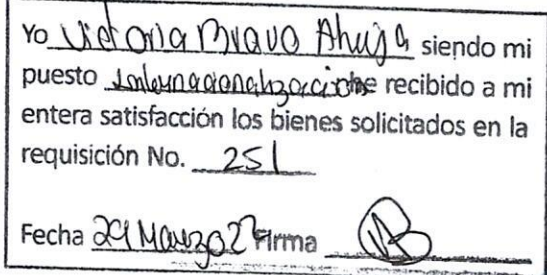 Yo Victoria Bravo Ahuja siendo mi
puesto Internacionalización he recibido a mi
entera satisfacción los bienes solicitados en la
requisición No. 251
Fecha 29 Marzo 2 Firma